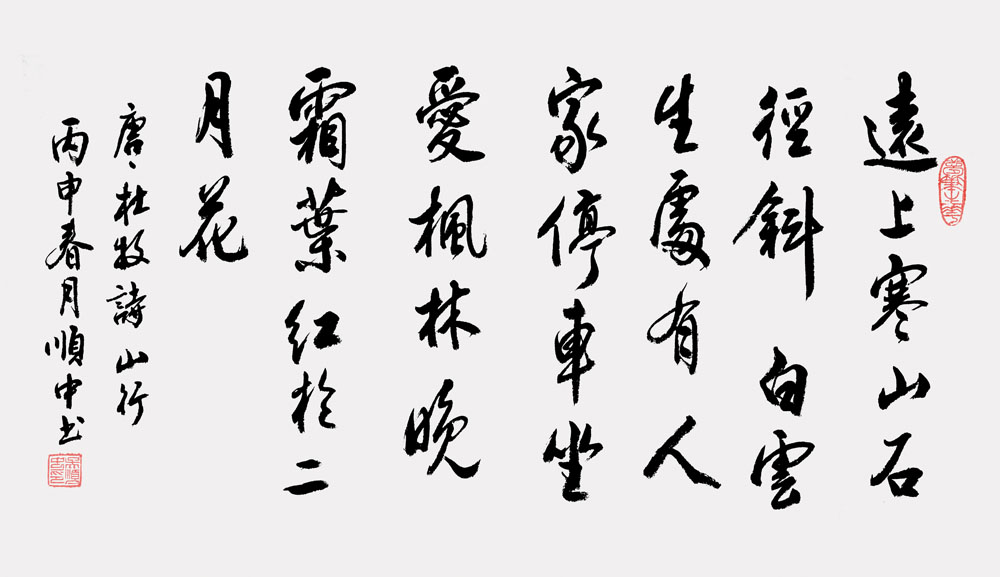 遠上寒山石
徑斜白雲
生處有人
家停車坐
愛楓林晚
霜葉紅於二
月花
唐、杜牧詩山行
丙申春月順中书